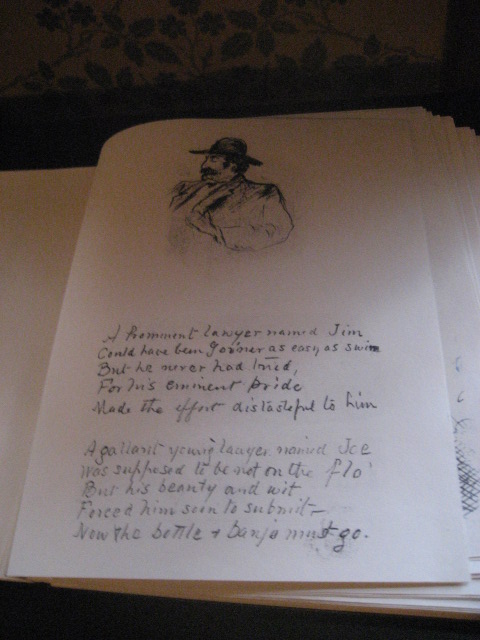 A Prominent lawyer named Jim
Could have been Gov'ner as easy as swim
But he never had tried,
For his eminent pride
Made the effort distasteful to him
A gallant young lawyer named Joe
Was supposed to be not on the flo'
But his beauty and wit
Forced him soon to submit—
Now the bottle + banjo must go.